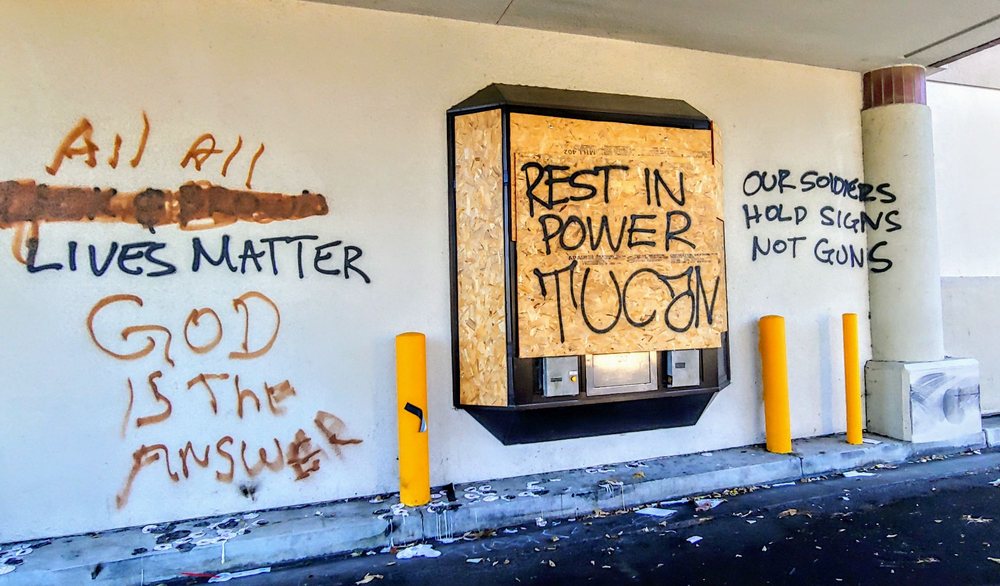 All All
LIVES MATTER
GOD
IS The
ANSWER
REST IN
POWER
TUCAN
OUR SOLDIERS
HOLD SIGNS
NOT GUNS